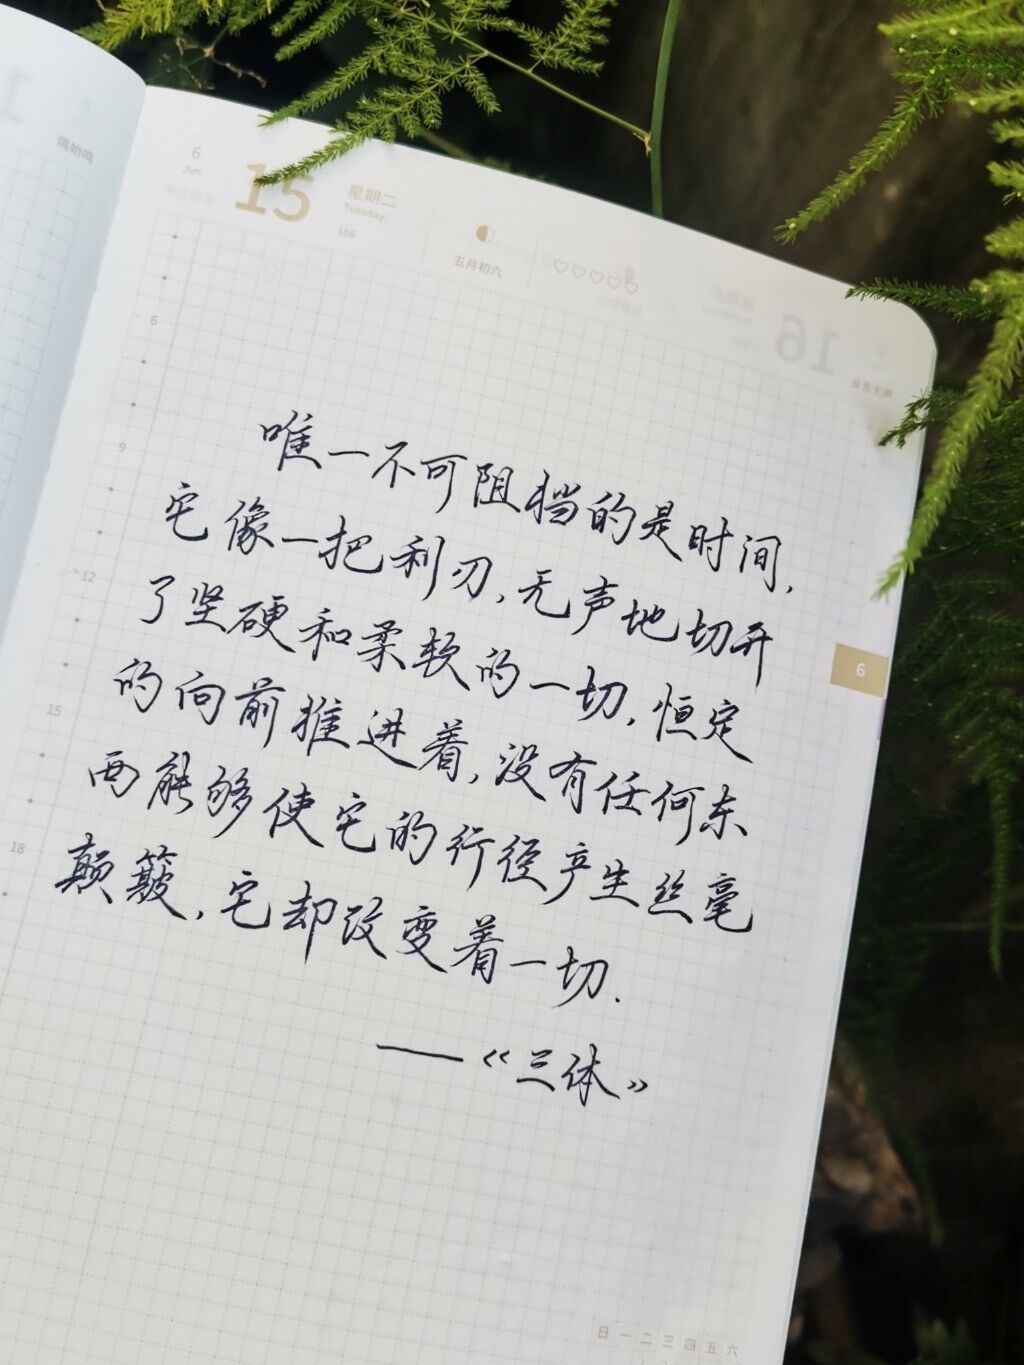 鸣始鸣
6
Jun
15
星期二
Tuesday
166
五月初六
16
6
9
12
15
18
6
唯一不可阻挡的是时间,
它像一把利刃,无声地切开
了坚硬和柔软的一切,恒定
的向前推进着,没有任何东
西能够使它的行径产生丝毫
颠簸,它却改变着一切.
——《三体》
日一二三四五六